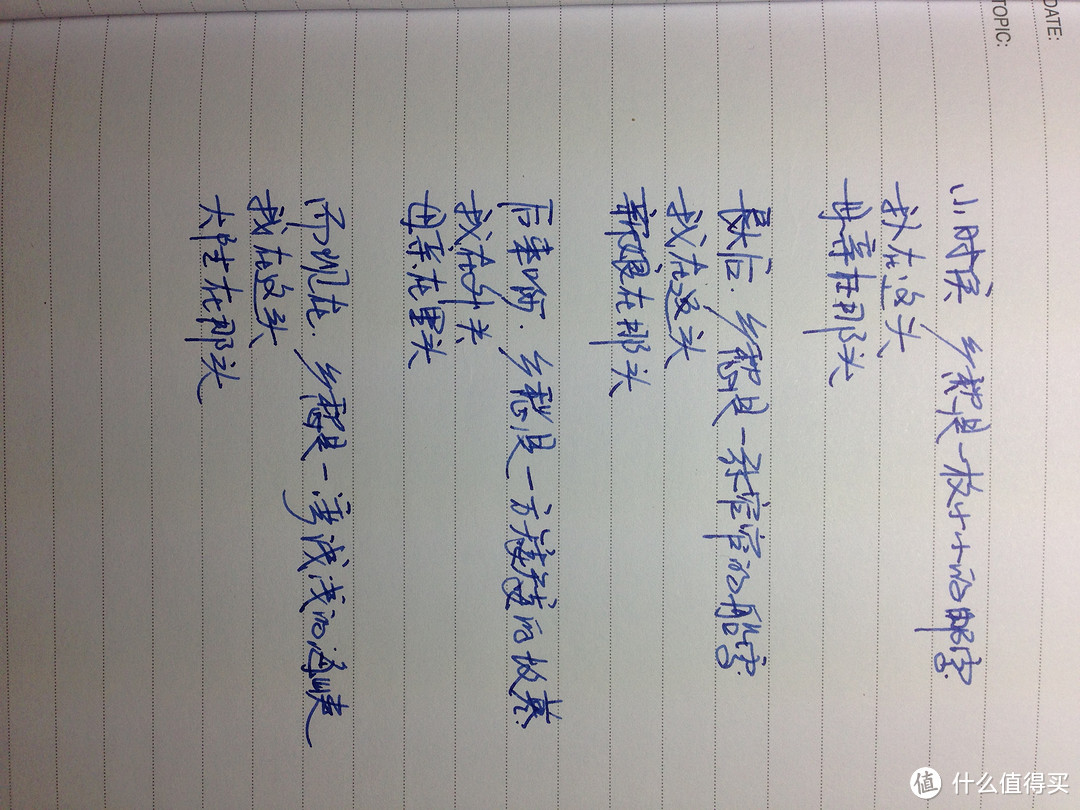 DATE:
TOPIC:
小时候 乡愁是一枚小小的邮票
我在这头
母亲在那头
最后.乡愁是一张窄窄的船票
我在这头
新娘在那头
后来啊.乡愁是一方矮矮的坟墓
我在外头
母亲在里头
而现在.乡愁是一湾浅浅的海峡
我在这头
大陆在那头
值 什么值得买